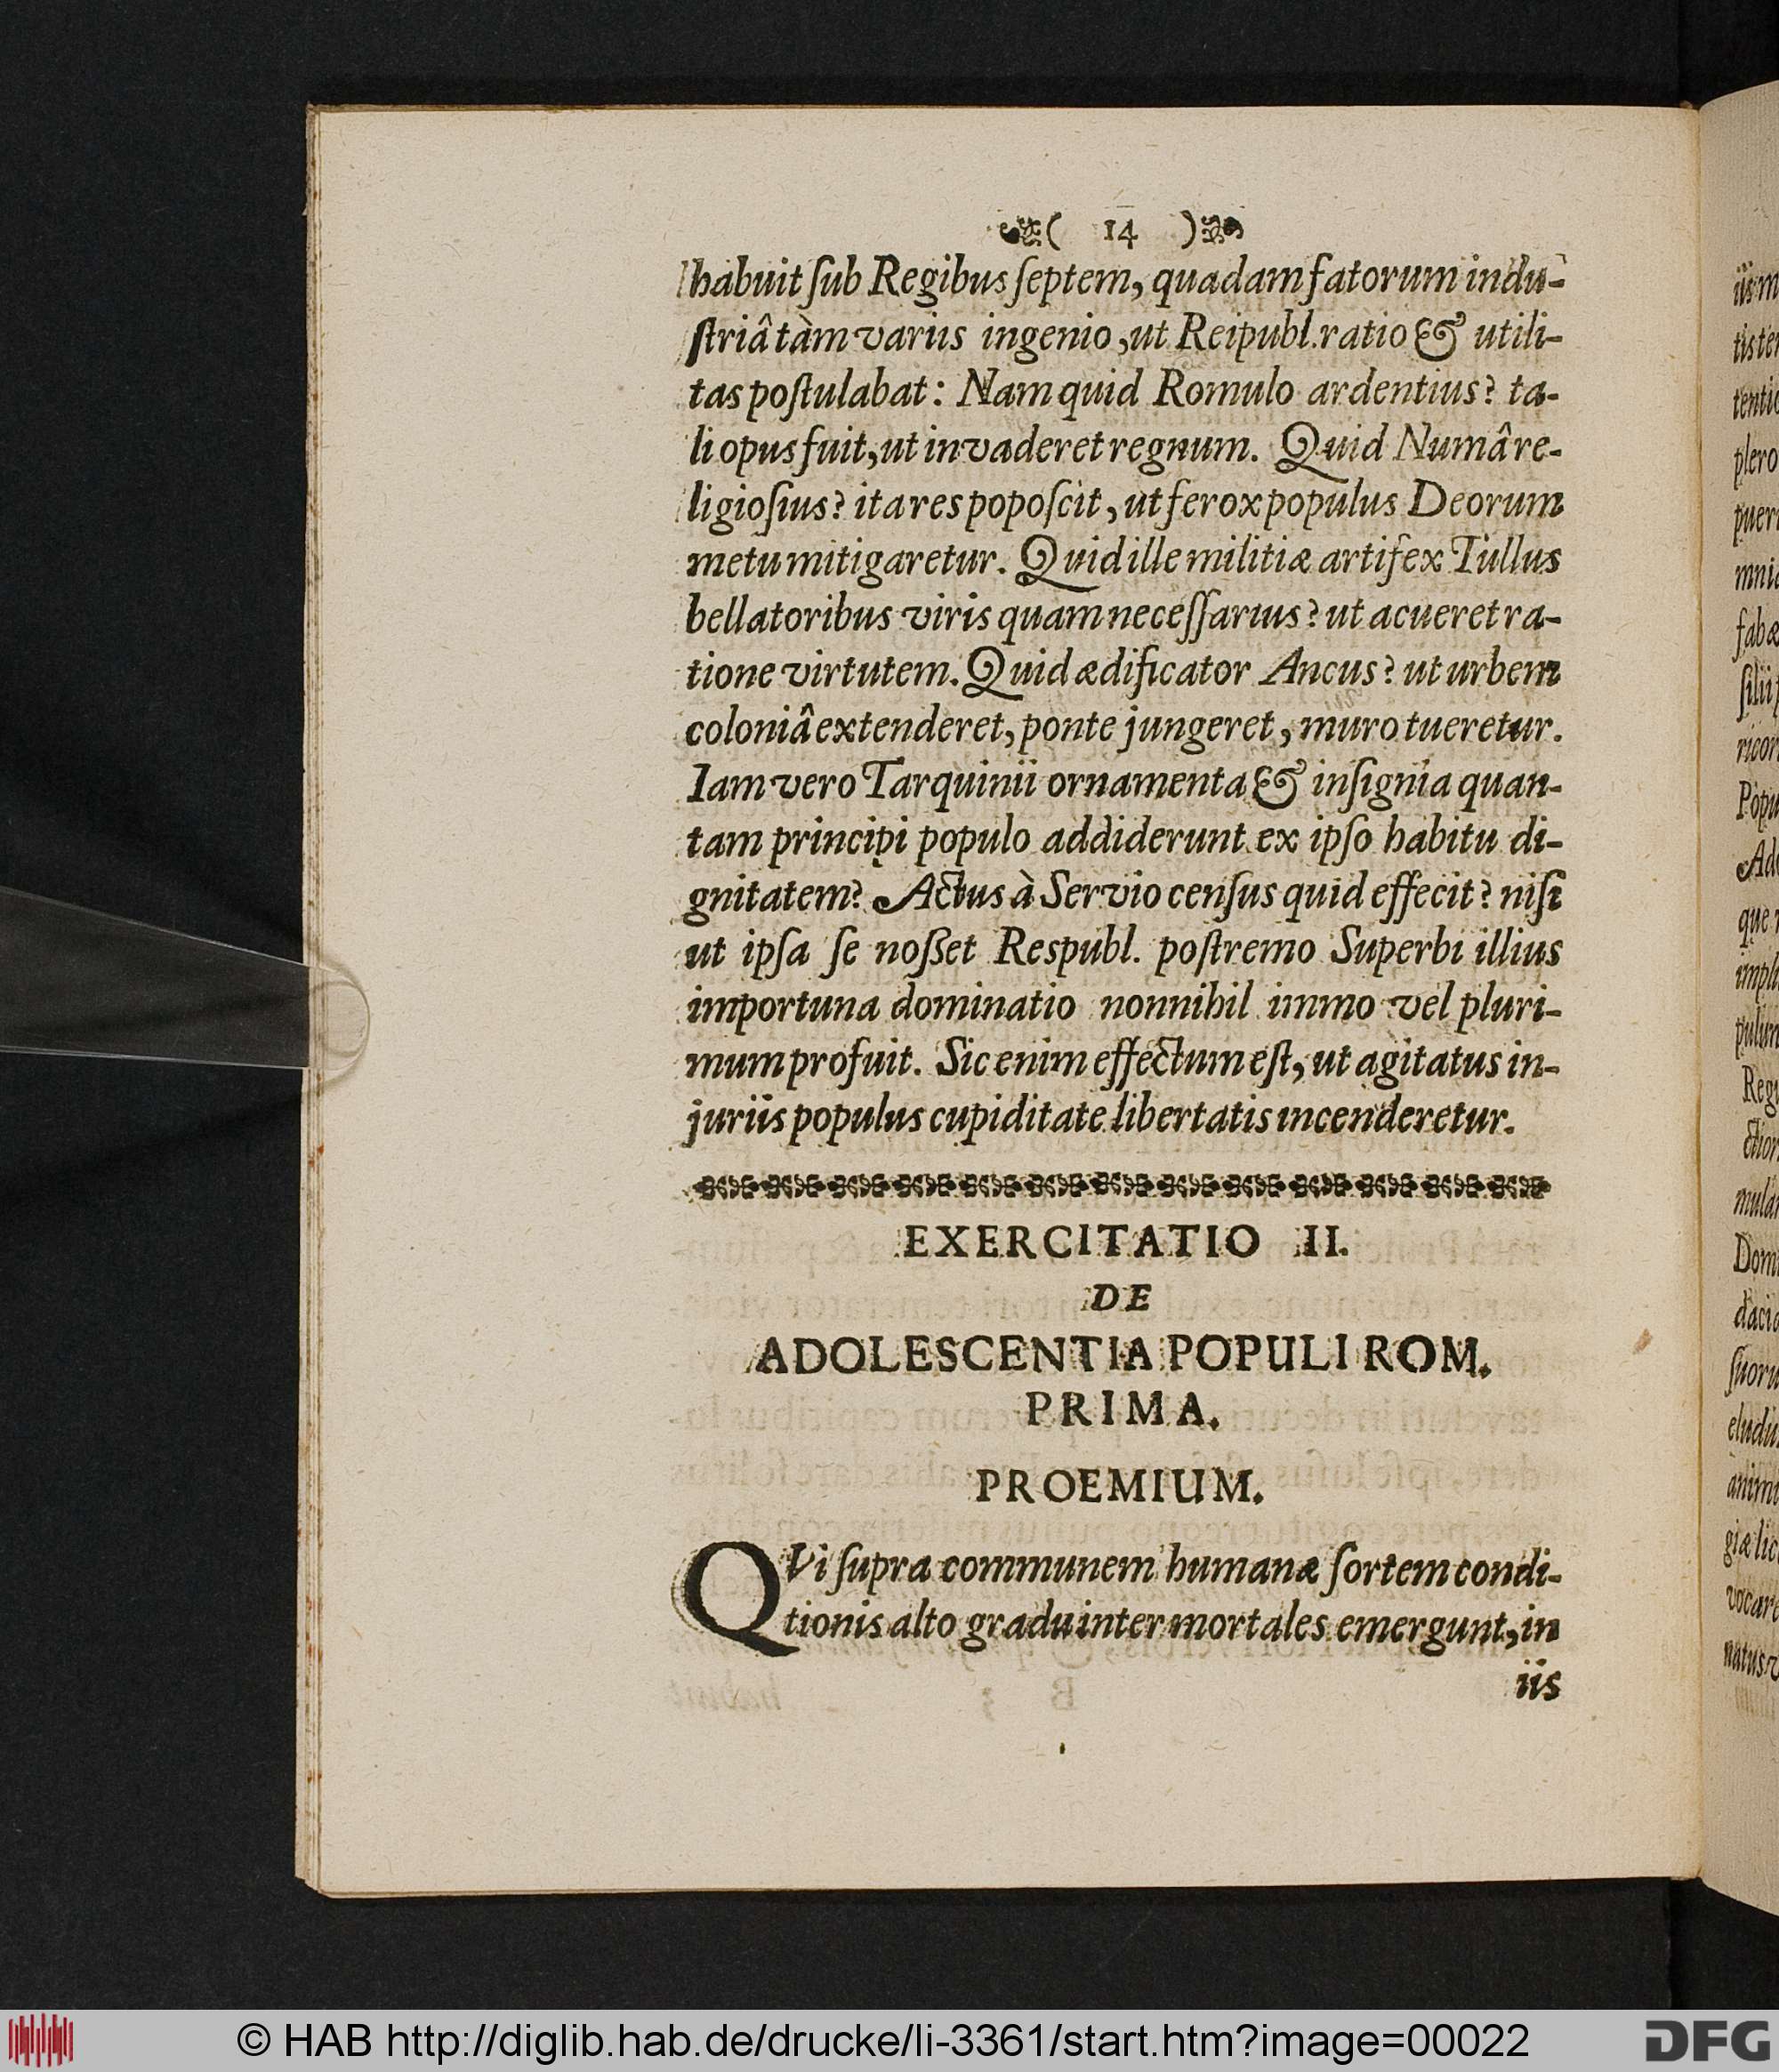 ( 14 )
habuit ſub Regibus ſeptem, quadam fatorum indu-
ſtriâ tàm variis ingenio, ut Reipubl. ratio & utili-
tas poſtulabat: Nam quid Romulo ardentius? ta-
li opus fuit, ut invaderet regnum. Quid Numâ re-
ligioſius? ita res popoſcit, ut ferox populus Deorum
metu mitigaretur. Quid ille militiæ artifex Tullus
bellatoribus viris quam neceſſarius? ut acueret ra-
tione virtutem. Quid ædificator Ancus? ut urbem
coloniâ extenderet, ponte jungeret, muro tueretur.
Iam vero Tarquinii ornamenta & inſignia quan-
tam principi populo addiderunt ex ipſo habitu di-
gnitatem? Actus à Servio cenſus quid effecit? niſi
ut ipſa ſe noßet Respubl. poſtremo Superbi illius
importuna dominatio nonnihil immo vel pluri-
mum profuit. Sic enim effectum eſt, ut agitatus in-
juriis populus cupiditate libertatis incenderetur.
EXERCITATIO II.
DE
ADOLESCENTIA POPULI ROM.
PRIMA.
PROEMIUM.
QVi ſupra communem humanæ ſortem condi-
tionis alto gradu inter mortales emergunt, in
iis
© HAB http://diglib.hab.de/drucke/li-3361/start.htm?image=00022
DFG